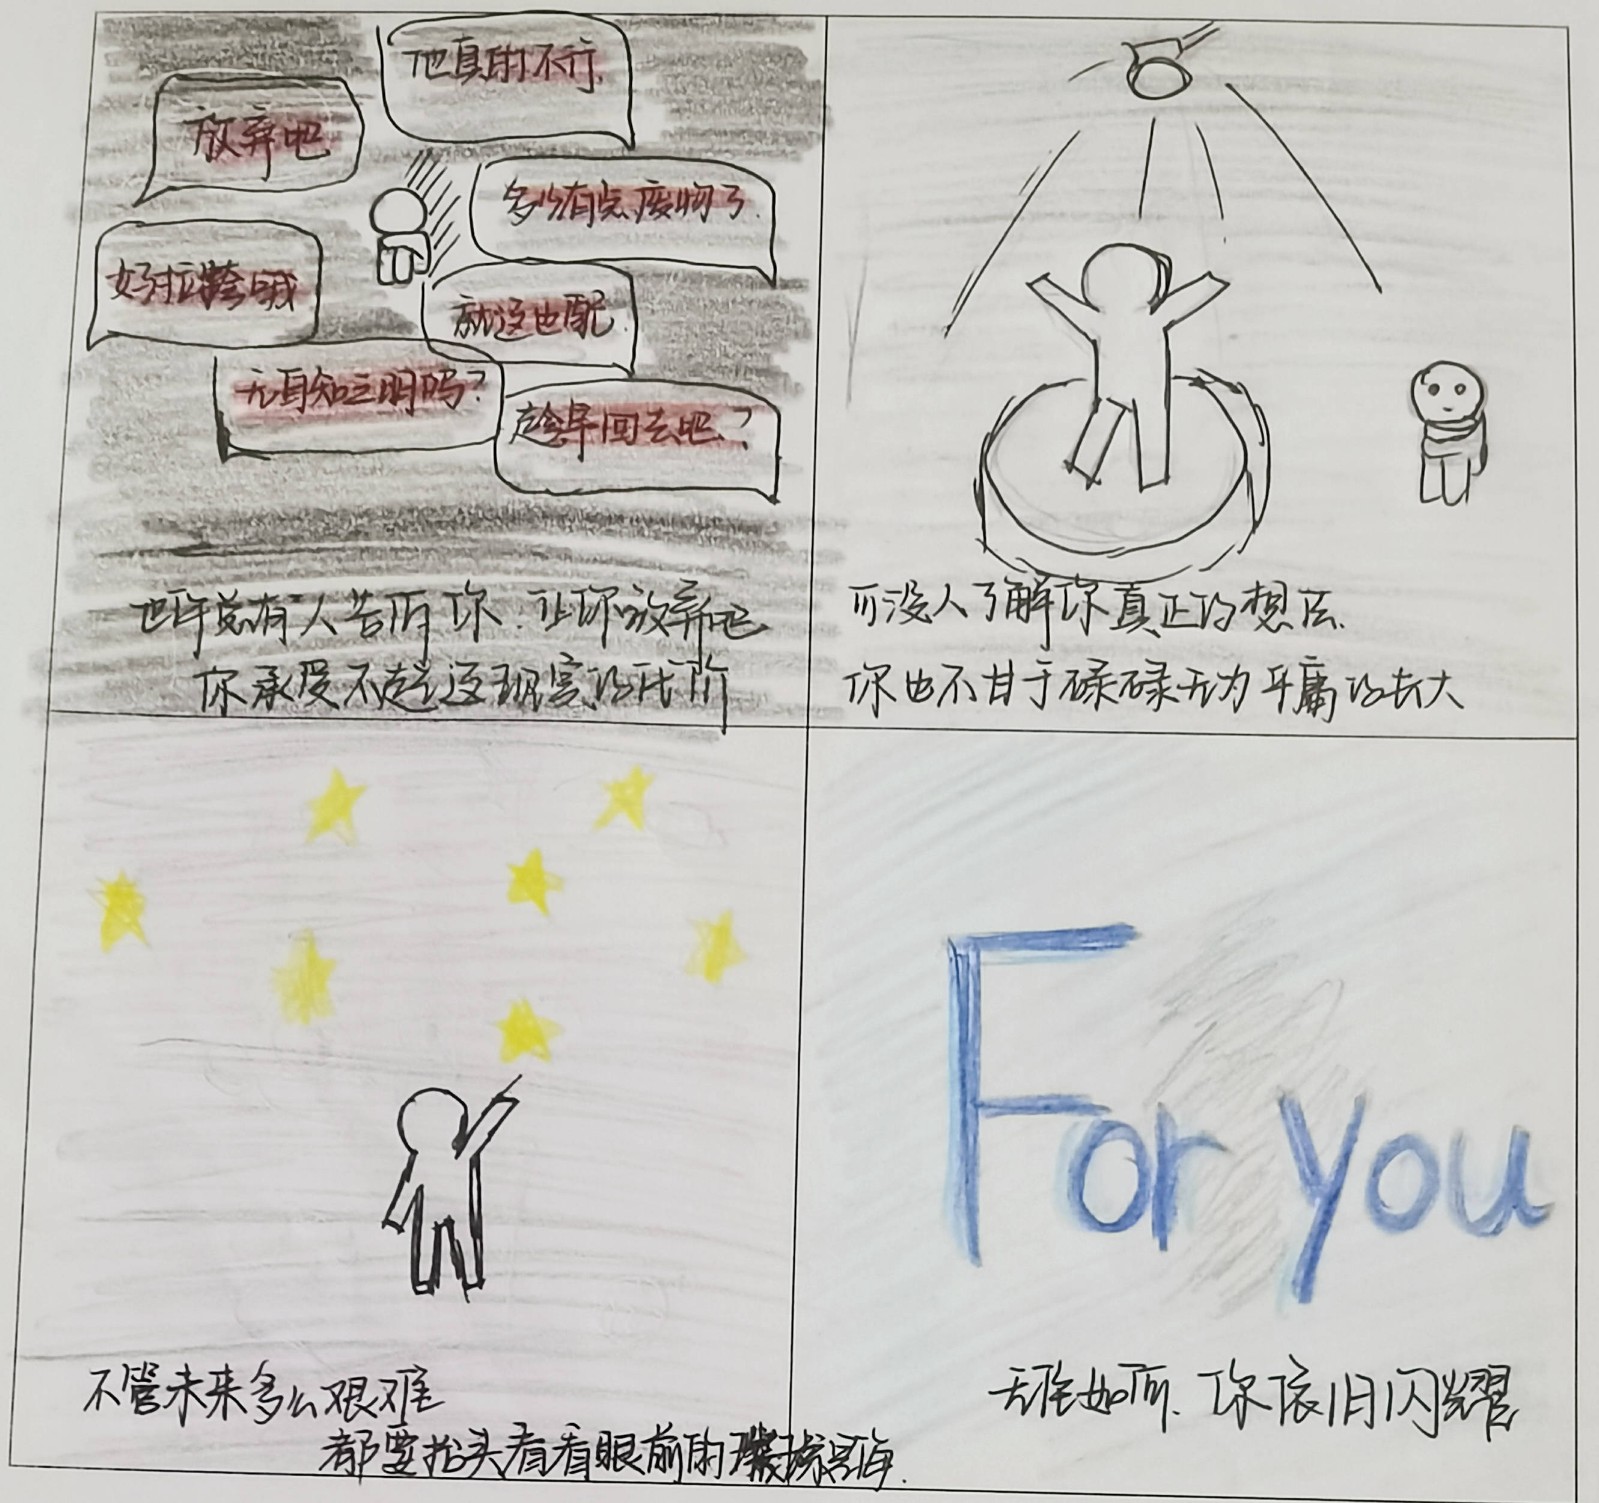 他真的不行
放弃吧
多少有点废物了
好拉胯哦
就这也配
无自知之明吗?
趁早回去吧?
也许总有人告诉你.让你放弃吧
你承受不起这现实的代价
可没人了解你真正的想法.
你也不甘于碌碌无为平庸的长大
不管未来多么艰难
都要抬头看看眼前的璀璨星海.
For you
无论如何.你依旧闪耀